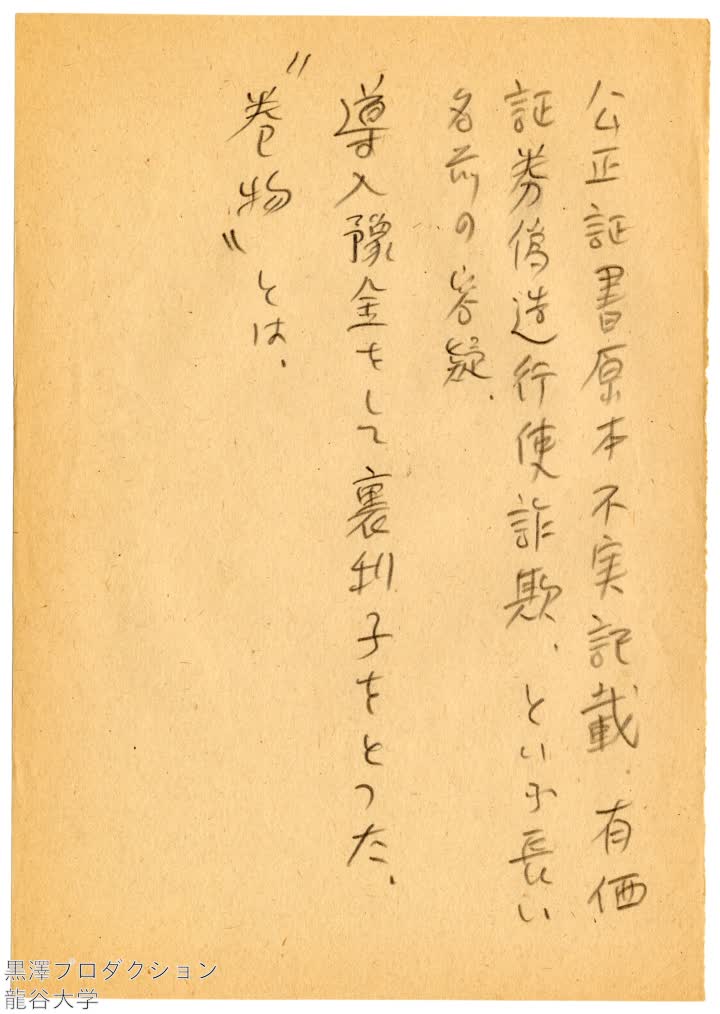 公正証書原本不実記載、有価
証券偽造行使詐欺、という長い
名前の容疑、
導入豫金をして裏利子をとつた、
〝巻物〟とは、
黒澤プロダクション
龍谷大学